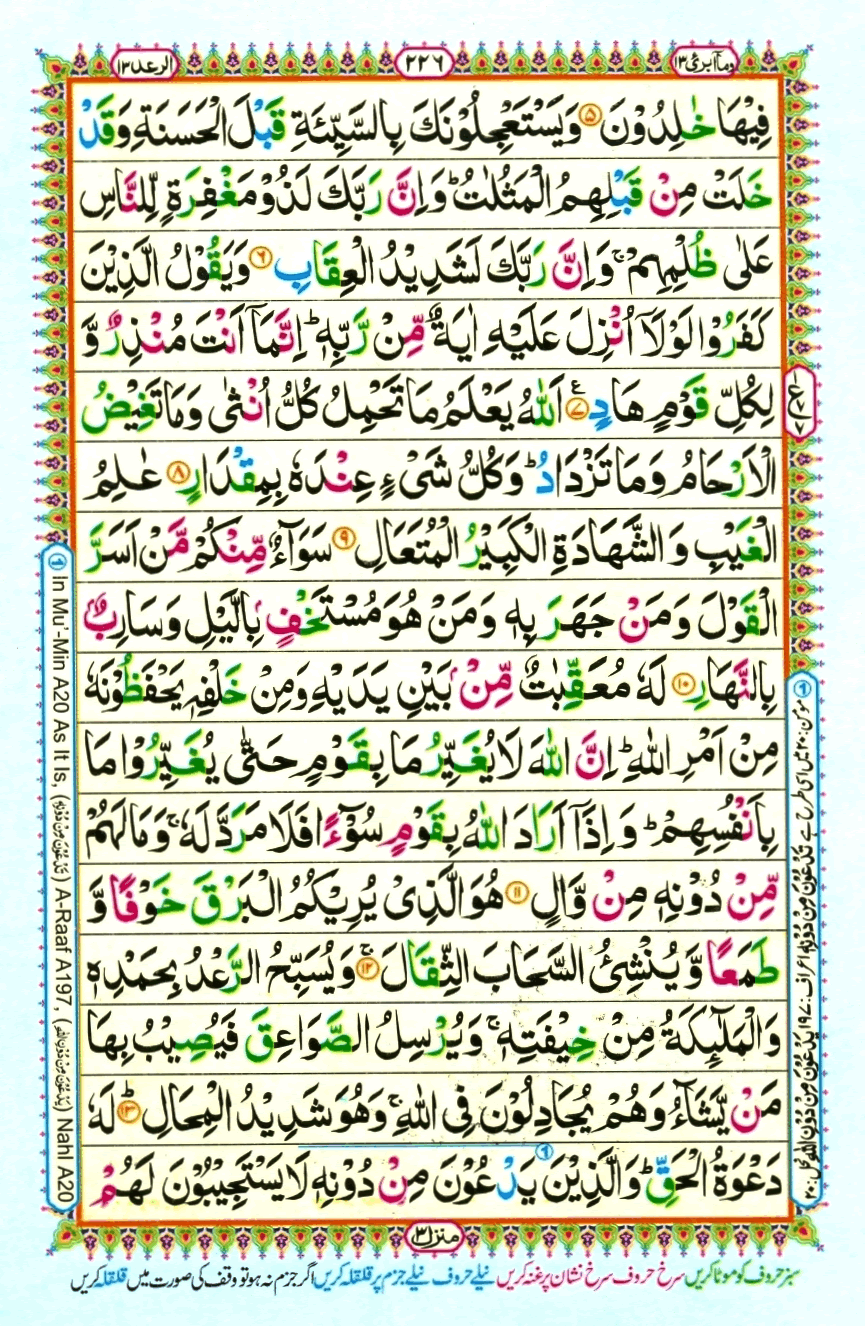 وماۤ ابرئ ١٣
٢٢٦
الرعد ١٣
فِيْهَا خٰلِدُوْنَ ۝٥ وَيَسْتَعْجِلُوْنَكَ بِالسَّيِّئَةِ قَبْلَ الْحَسَنَةِ وَقَدْ
خَلَتْ مِنْ قَبْلِهِمُ الْمَثُلٰتُ ؕ وَاِنَّ رَبَّكَ لَذُوْ مَغْفِرَةٍ لِّلنَّاسِ
عَلٰى ظُلْمِهِمْ ۚ وَاِنَّ رَبَّكَ لَشَدِيْدُ الْعِقَابِ ۝٦ وَيَقُوْلُ الَّذِيْنَ
كَفَرُوْا لَوْلَاۤ اُنْزِلَ عَلَيْهِ اٰيَةٌ مِّنْ رَّبِّهٖ ؕ اِنَّمَاۤ اَنْتَ مُنْذِرٌ وَّ
لِكُلِّ قَوْمٍ هَادٍ ۝٧ اَللّٰهُ يَعْلَمُ مَا تَحْمِلُ كُلُّ اُنْثٰى وَمَا تَغِيْضُ
الْاَرْحَامُ وَمَا تَزْدَادُ ؕ وَكُلُّ شَىْءٍ عِنْدَهٗ بِمِقْدَارٍ ۝٨ عٰلِمُ
الْغَيْبِ وَالشَّهَادَةِ الْكَبِيْرُ الْمُتَعَالِ ۝٩ سَوَآءٌ مِّنْكُمْ مَّنْ اَسَرَّ
الْقَوْلَ وَمَنْ جَهَرَ بِهٖ وَمَنْ هُوَ مُسْتَخْفٍۭ بِالَّيْلِ وَسَارِبٌۢ
بِالنَّهَارِ ۝١٠ لَهٗ مُعَقِّبٰتٌ مِّنْۢ بَيْنِ يَدَيْهِ وَمِنْ خَلْفِهٖ يَحْفَظُوْنَهٗ
مِنْ اَمْرِ اللّٰهِ ؕ اِنَّ اللّٰهَ لَا يُغَيِّرُ مَا بِقَوْمٍ حَتّٰى يُغَيِّرُوْا مَا
بِاَنْفُسِهِمْ ؕ وَاِذَاۤ اَرَادَ اللّٰهُ بِقَوْمٍ سُوْٓءًا فَلَا مَرَدَّ لَهٗ ۚ وَمَا لَهُمْ
مِّنْ دُوْنِهٖ مِنْ وَّالٍ ۝١١ هُوَ الَّذِىْ يُرِيْكُمُ الْبَرْقَ خَوْفًا وَّ
طَمَعًا وَّيُنْشِئُ السَّحَابَ الثِّقَالَ ۝١٢ۚ وَيُسَبِّحُ الرَّعْدُ بِحَمْدِهٖ
وَالْمَلٰٓئِكَةُ مِنْ خِيْفَتِهٖ ۚ وَيُرْسِلُ الصَّوَاعِقَ فَيُصِيْبُ بِهَا
مَنْ يَّشَآءُ وَهُمْ يُجَادِلُوْنَ فِى اللّٰهِ ۚ وَهُوَ شَدِيْدُ الْمِحَالِ ۝١٣ؕ لَهٗ
دَعْوَةُ الْحَقِّ ؕ وَالَّذِيْنَ يَدْعُوْنَ مِنْ دُوْنِهٖ لَا يَسْتَجِيْبُوْنَ لَهُمْ
منزل ٣
① مؤمن: ٢٠ میں اسی طرح ہے تَدْعُوْنَ مِنْ دُوْنِهٖ اعراف: ١٩٧ يَدْعُوْنَ مِنْ دُوْنِ اللّٰهِ نحل: ٢٠
① In Mu'-Min A20 As It Is, (تَدْعُوْنَ مِنْ دُوْنِهٖ) A-Raaf A197, (يَدْعُوْنَ مِنْ دُوْنِ اللّٰهِ) Nahl A20
سبز حروف کو موٹا کریں سرخ حروف سرخ نشان پر غنہ کریں نیلے حروف نیلے جزم پر قلقلہ کریں اگر جزم نہ ہو تو وقف کی صورت میں قلقلہ کریں